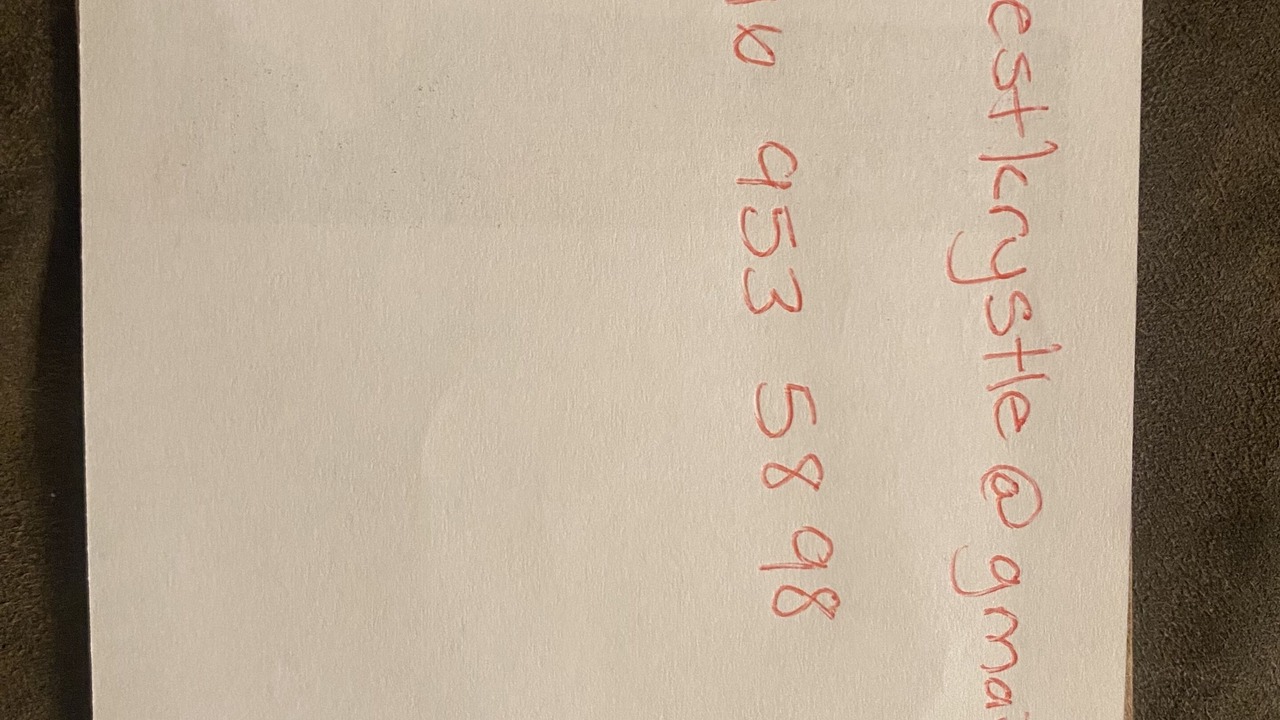 estkrystle@gmai
6 953 5898